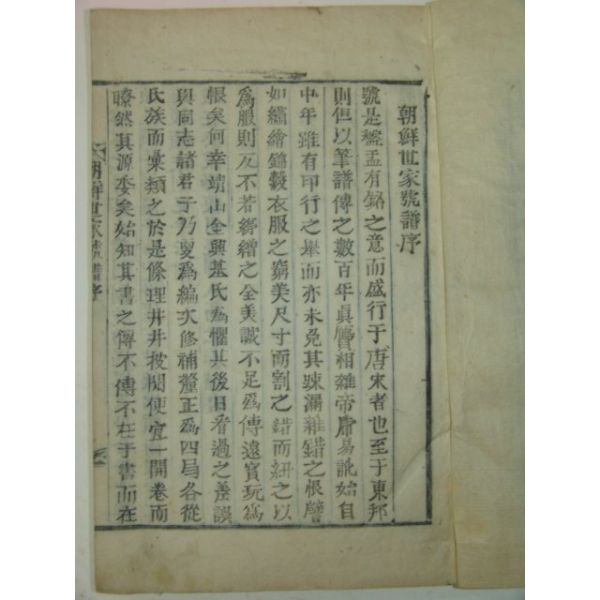 朝鮮世家號譜序
號是盤盂有銘之意而盛行于唐宋者也至于東邦
則但以筆譜傳之數百年眞贋相雜帝席易訛始自
中年雖有印行之擧而亦未免其踈漏雜錯之恨譬
如繡繪錦縠衣服之窮美尺寸而割之錯而紐之以
爲服則反不若綈繒之全美誠不足爲傳遠寶玩爲
恨矣何幸靖山全興基氏爲懼其後日看過之差誤
與同志諸君子乃更爲編次修補釐正爲四局各從
氏族而彙類之於是條理井井披閱便宜一開卷而
瞭然其源委矣始知其書之傳不傳不在于書而在
朝鮮世家號譜序